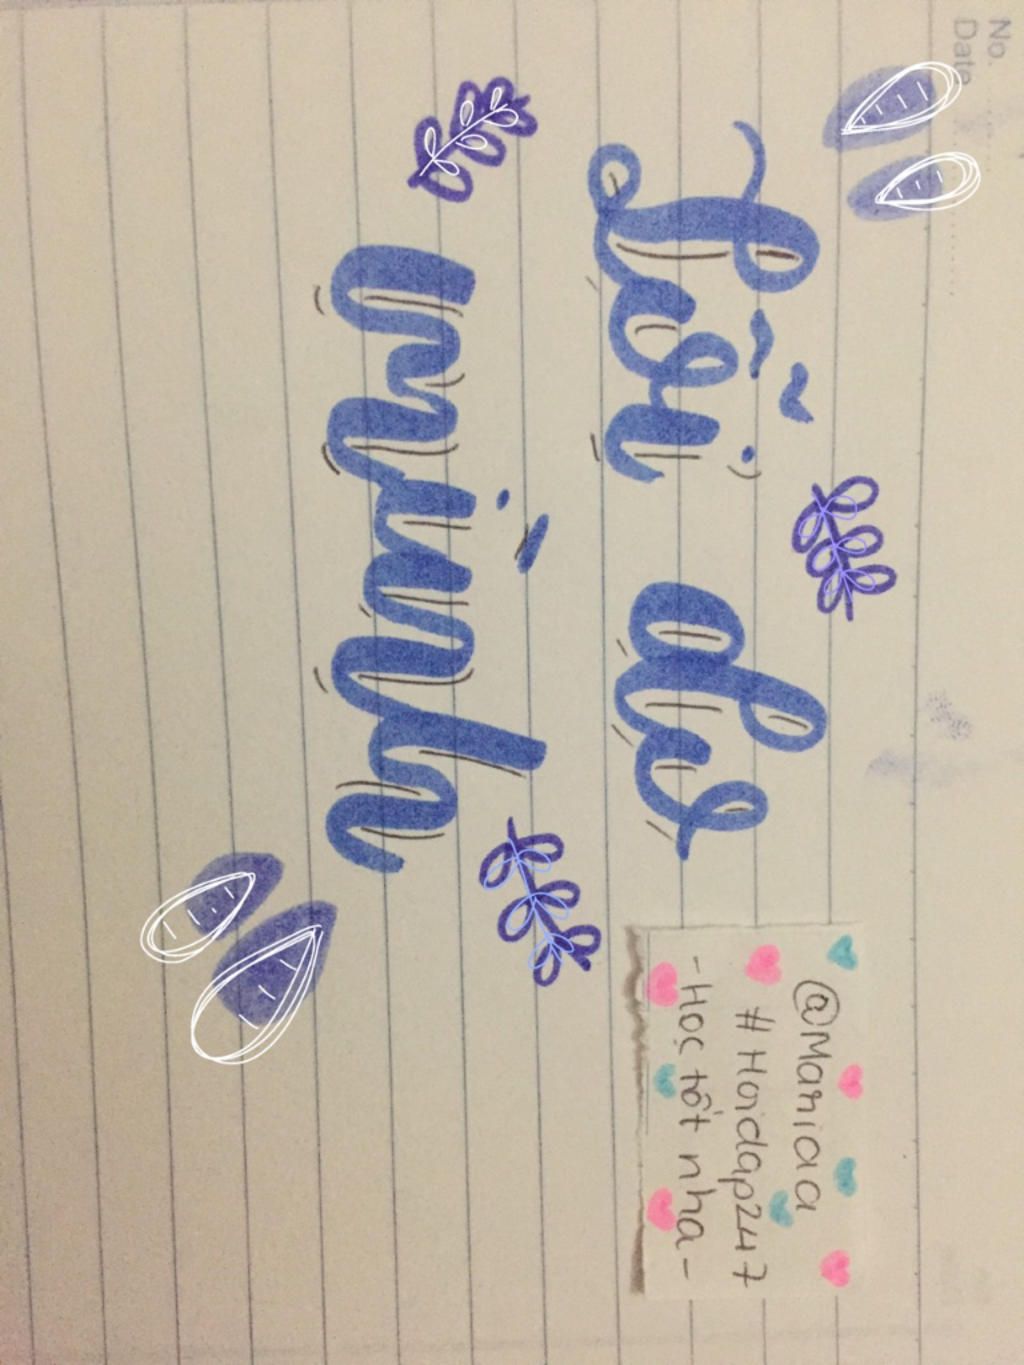 No.
Date
Lỗi do
mình
@Maniaa
#Hoidap247
-Học tốt nha-